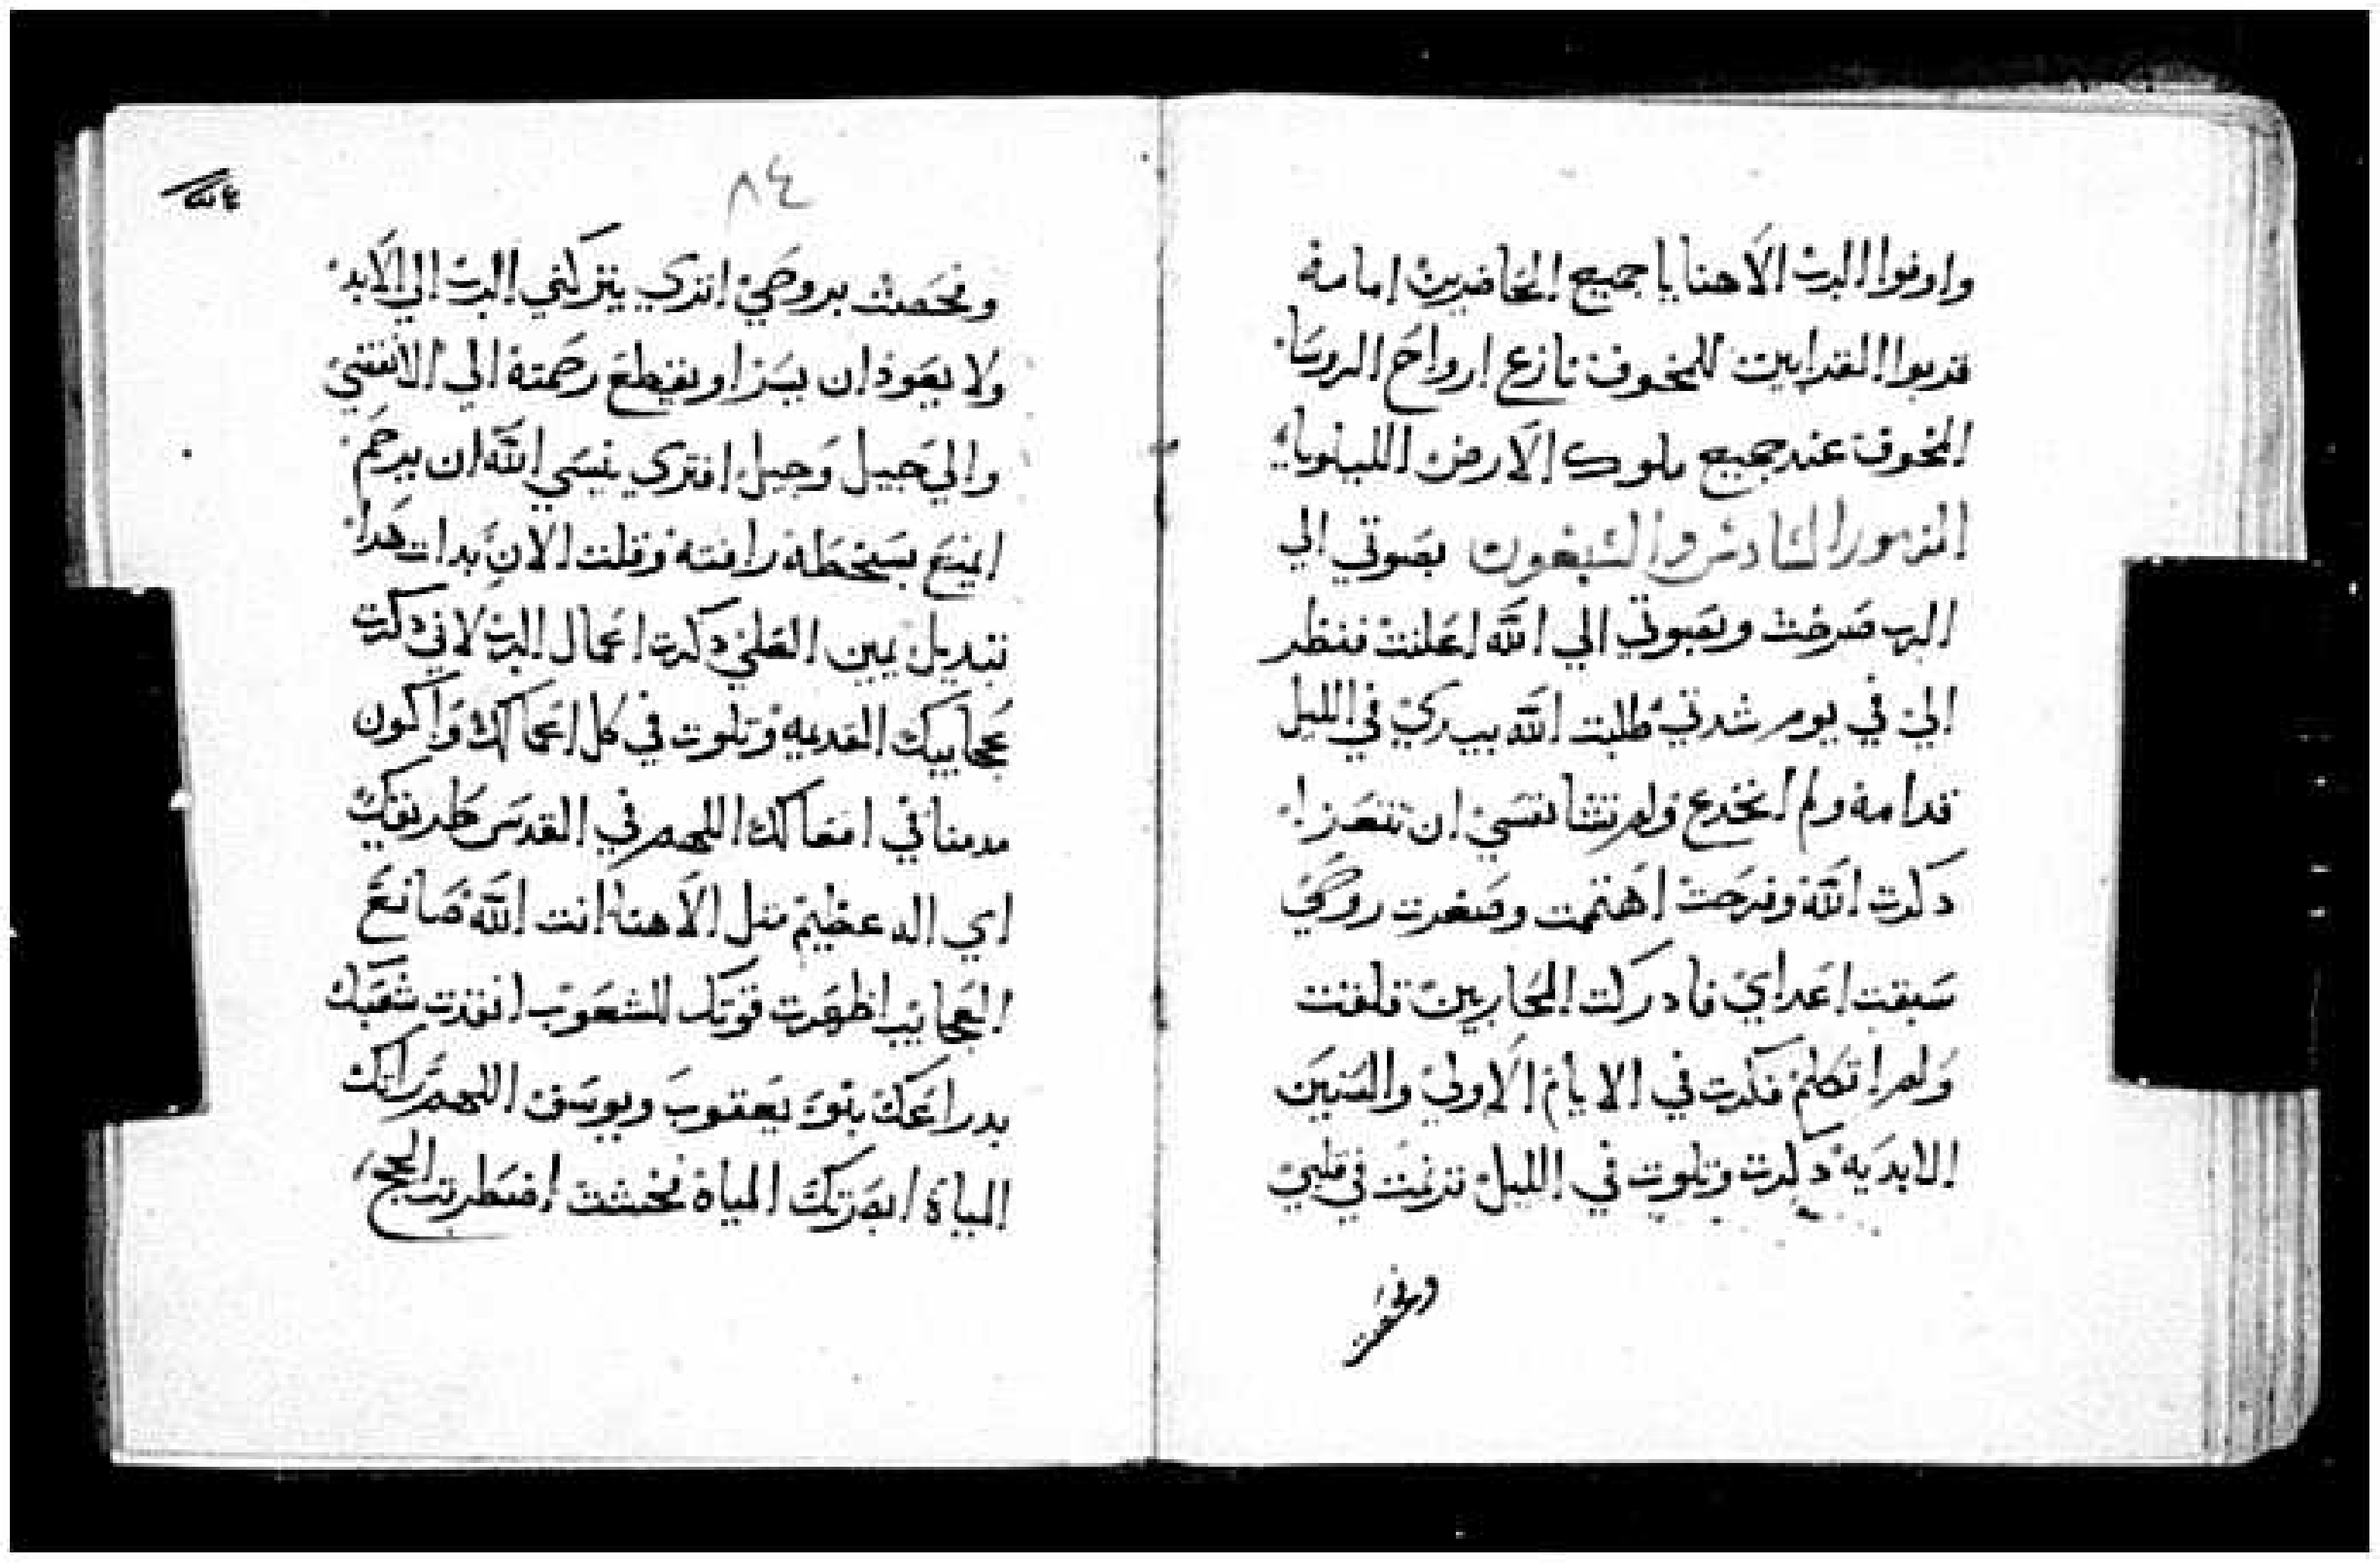 واوفوا الرب الاهنا يا جميع الحاضرين امامه
قربوا القرابين للمخوف نازع ارواح الروسا
المخوف عند جميع ملوك الارض الليلويا
المزمور السادس والسبعون بصوتي الي
الرب صرخت وبصوتي الي الله اعلنت فنظر
الي في يوم شدتي طلبت الله بيدي في الليل
قدامه ولم انخدع ولم تشا نفسي ان تتعزا
دكرت الله وفرحت اهتممت وصغرت روحي
سبقت اعداي فادركت المحاربين قلقت
ولم اتكلم فكرت في الايام الاولي والسنين
الابديه دكرت وتلوت في الليل ترنمت في قلبي
وفحصت
٨٤
وفحصت بروحي اتري يتركني الرب الي الابد
ولا يعود ان يسر او يقطع رحمته الي الانقضي
والي جيل وجيل اتري ينسي الله ان يرحم
ايمنع بسخطه رافته وقلت الان بدات هدا
تبديل يمين العلي دكرت اعمال الرب لاني دكرت
عجاييك القديمه وتلوت في كل اعمالك واكون
مدمنا في افعالك اللهم في القدس طريقك
اي اله عظيم متل الاهنا انت الله صانع
العجائب اظهرت قوتك للشعوب انقدت شعبك
بدراعك بنو يعقوب ويوسف اللهم راتك
المياه ابصرتك المياه فخشت اضطربت اللجج